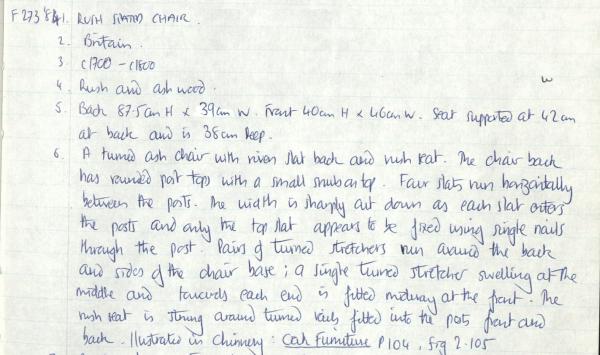 F273'84 1. RUSH SEATED CHAIR.
2. Britain.
3. c1700 - c1800
4. Rush and ash wood.
5. Back 87.5cm H x 39cm W. Front 40cm H x 46cm W. Seat supported at 42cm
at back and is 38cm deep.
6. A turned ash chair with riven slat back and rush seat. The chair back
has rounded post tops with a small snub on top. Four slats run horizontally
between the posts. The width is sharply cut down as each slat enters
the posts and only the top slat appears to be fixed using single nails
through the post. Pairs of turned stretchers run around the back
and sides of the chair base; a single turned stretcher swelling at the
middle and towards each end is fitted midway at the front. The
rush seat is strung around turned rails fitted into the posts front and
back. Illustrated in Chinnery: Oak Furniture P104, fig 2.105